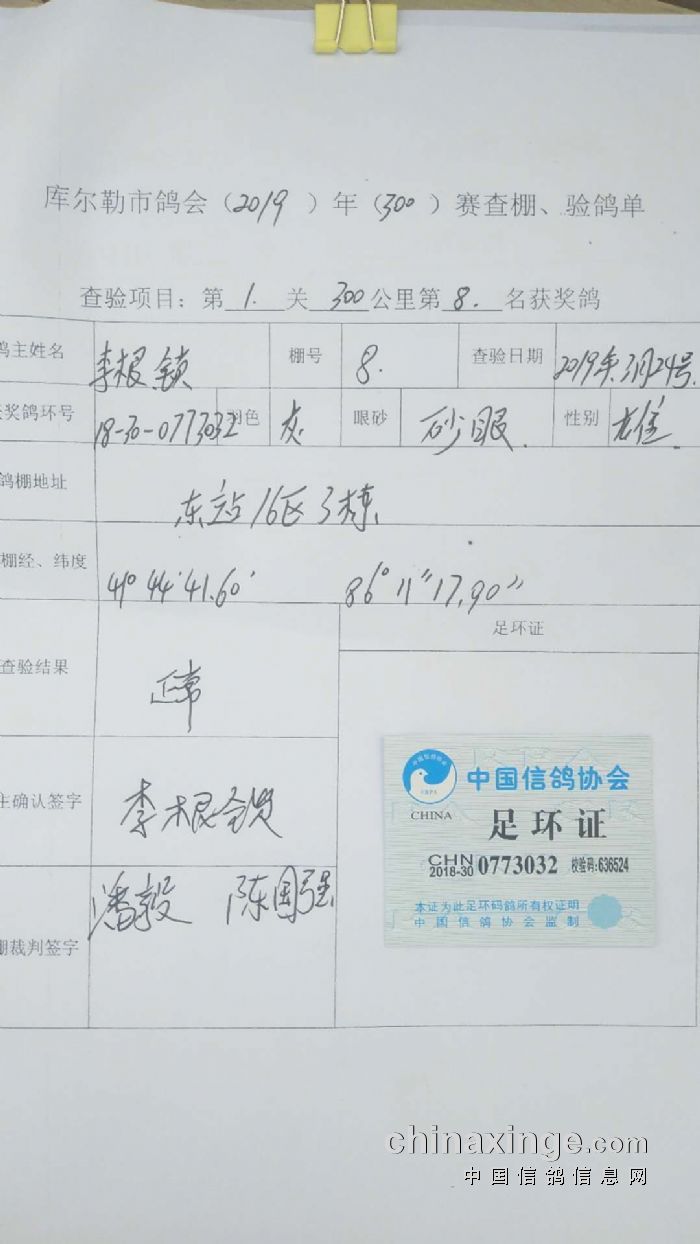 库尔勒市鸽会（2019）年（300）赛查棚、验鸽单
查验项目：第 1. 关 300 公里第 8. 名获奖鸽
鸽主姓名 李根锁 棚号 8. 查验日期 2019年3月24号
奖鸽环号 18-30-0773032 羽色 灰 眼砂 砂眼. 性别 雄
鸽棚地址 东站16区3栋
棚经、纬度 41°44'41.60' 86°11"17.90"
查验结果 正常 足环证
主确认签字 李根锁
棚裁判签字 潘毅 陈国强
中国信鸽协会
CHINA
足环证
CHN
2018-30 0773032 校验码:636524
本证为此足环码鸽所有权证明
中国信鸽协会监制
chinaxinge.com
中国信鸽信息网